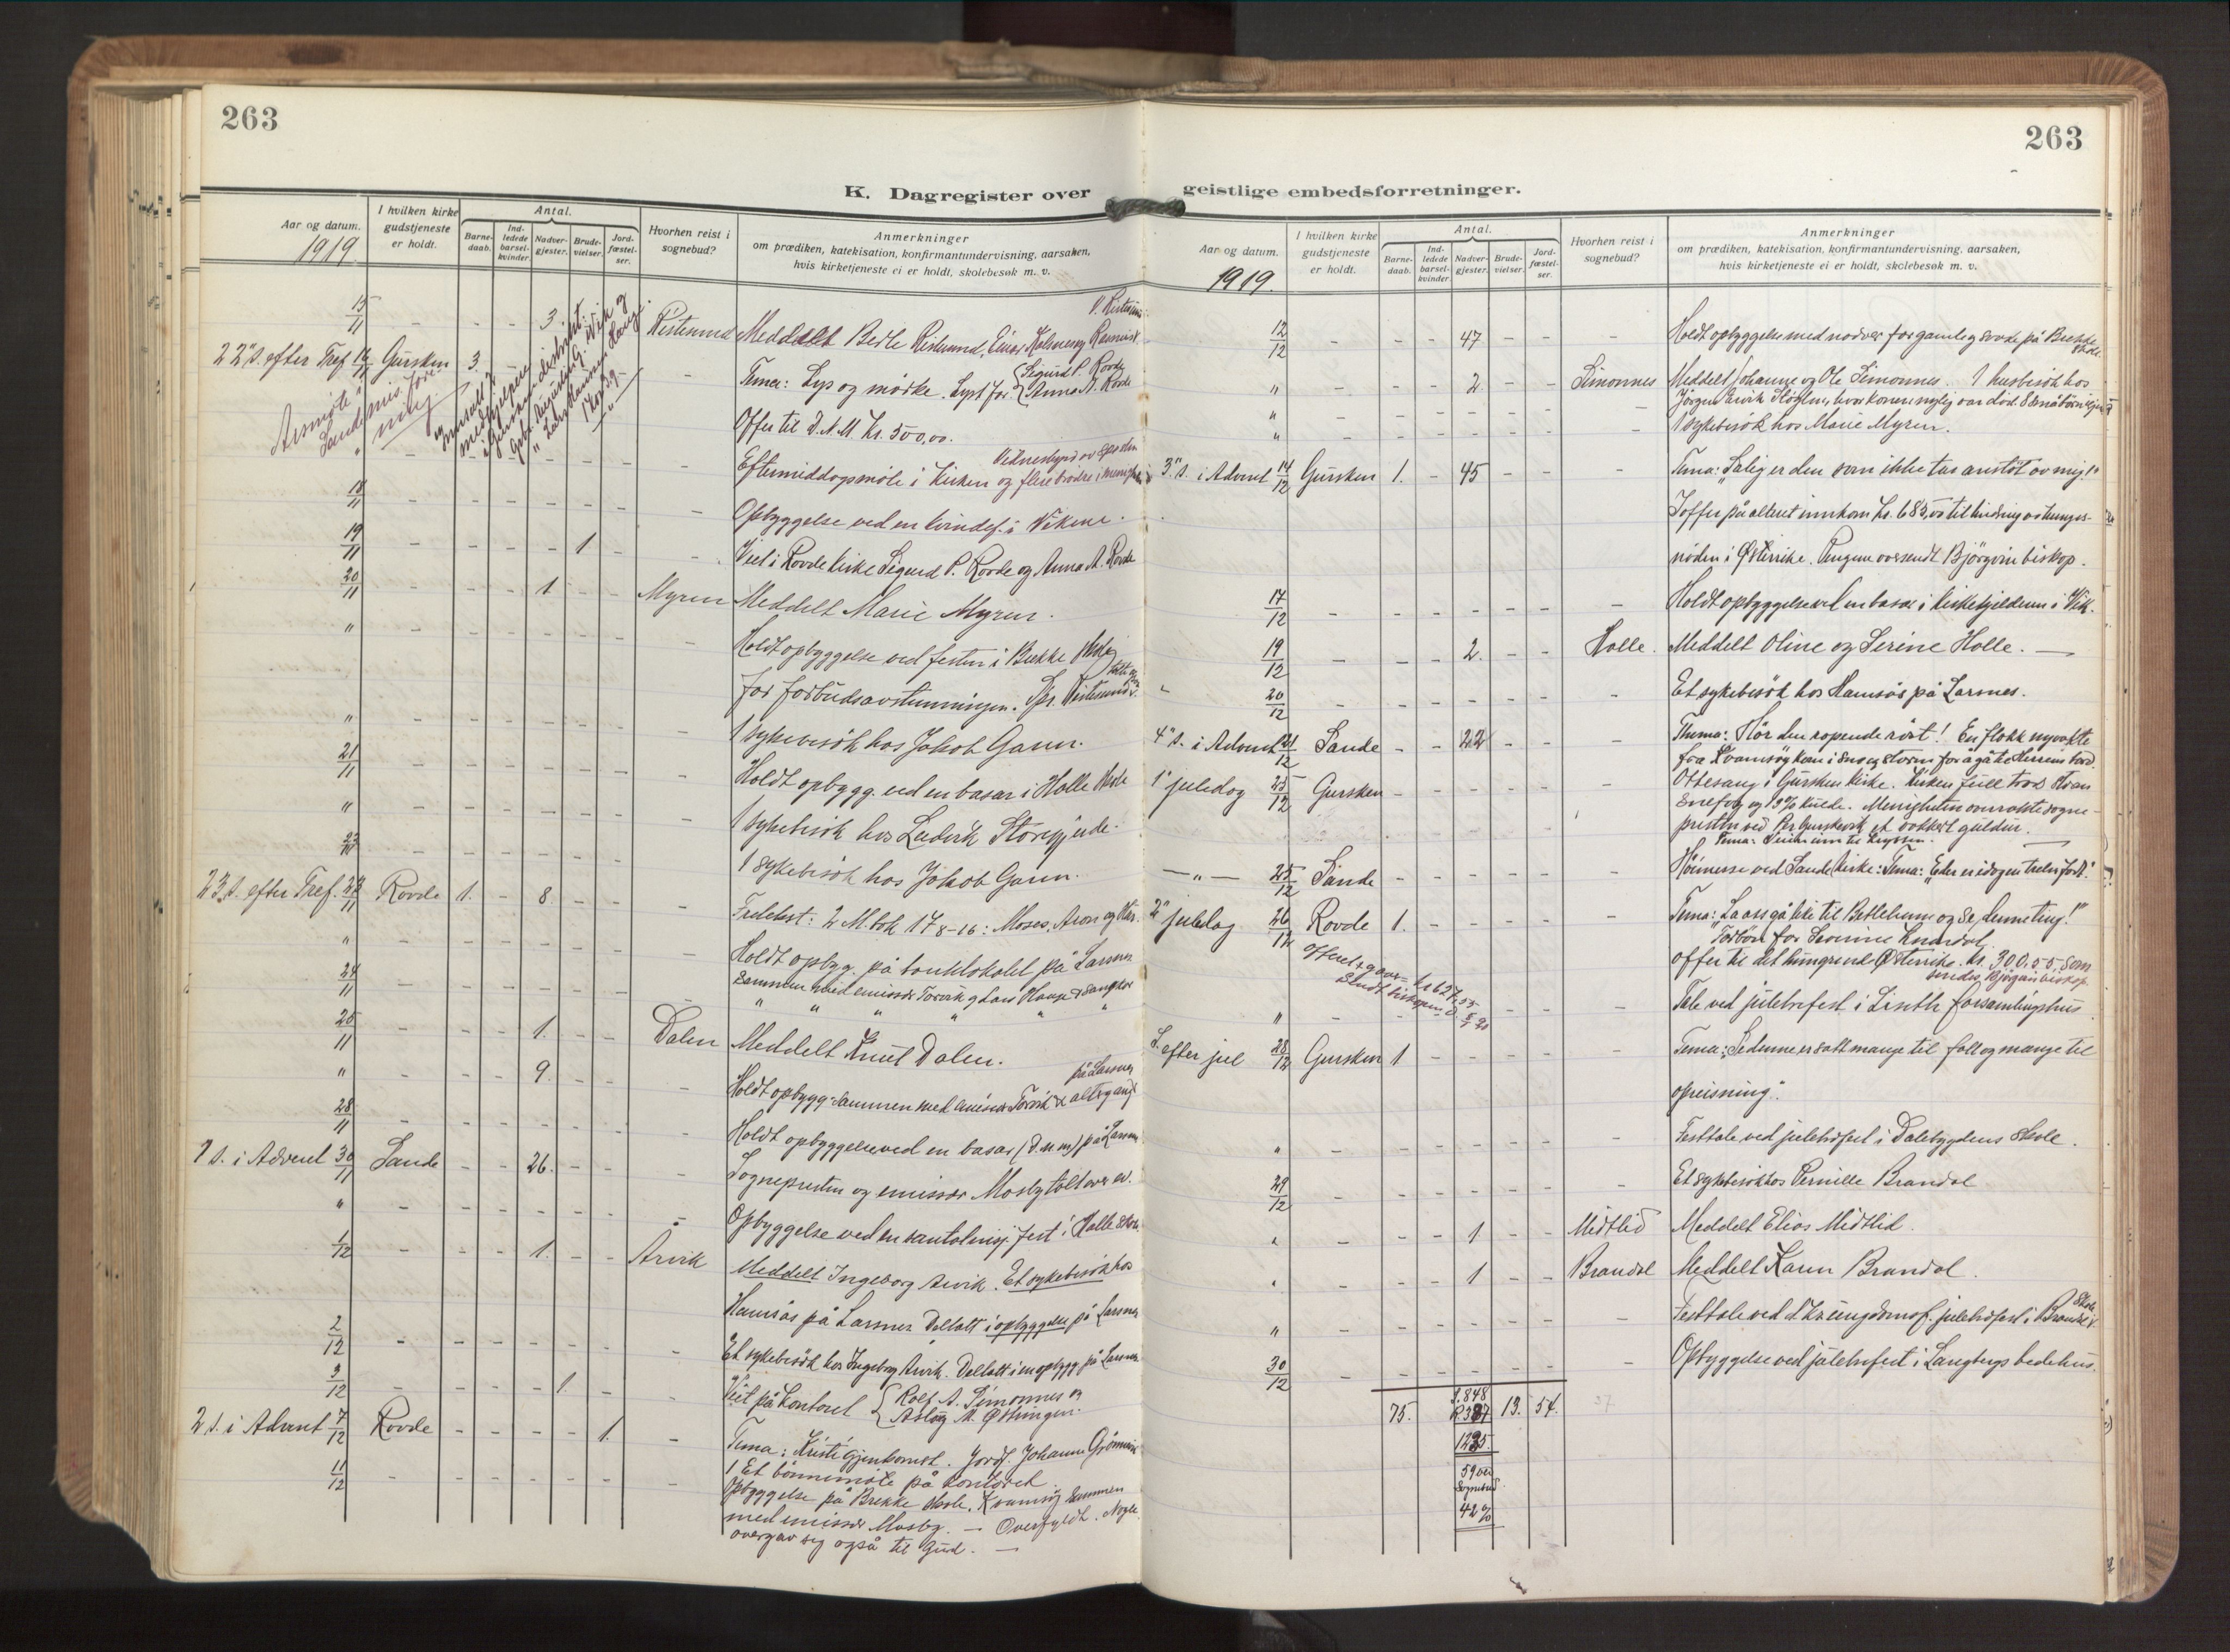 263
K. Dagregister over
Aar og datum.
1919.
I hvilken kirke gudstjeneste er holdt.
Antal.
Barne-daab.
Ind-ledede barsel-kvinder.
Nadver-gjester.
Brude-vielser.
Jord-fæstel-ser.
Hvorhen reist i sognebud?
Anmerkninger
om prædiken, katekisation, konfirmantundervisning, aarsaken,
hvis kirketjeneste ei er holdt, skolebesøk m. v.
15/11 - - - 3. Ristesund Meddelt Berte Ristesund, Einar
22 s. efter Tref. 16/11 Gursken 3. - Tema: Lys og mørke. Lyst for { Sigurd P. Rovde
Anna A. Rovde
Årsmøte i Søndmøre
Offer til D.N.M. Kr. 500,00.
" - - Eftermiddagsmøte i kirken og flere brødre i menigheten
18/11 - - - - - - - Opbyggelse ved en kvindef. i Vikene.
19/11 - - - - 1 - - Viet i Rovde kirke Sigurd P. Rovde og Anna A. Rovde
20/11 - - - 1 - - Myren Meddelt Marie Myren.
" - Holdt opbyggelse ved festen i Brekke skole
for forbudsavstemningen.
" - - - - - - - 1 sykebesøk hos Jakob Garen.
21/11 - - - - - - - Holdt opbygg. ved en basar i Holle skole
" - - - - - - - 1 sykebesøk hos Ludvik Storegjerde.
23/11 - - - - - - 1 sykebesøk hos Jakob Garen.
23 s. efter Tref. 23/11 Rovde 1. - 8 - - - Fritekst: 2 M. bok 17 8-16: Moses, Aron og Hur.
" - - - - - - - Holdt opbyg. på banklokalet på Larsnes
24/11 - - - - - - - sammen med emissær Torvik og Lars Hauge
25/11 - - - 1. - - Dalen Meddelt Knut Dalen.
" - - - 9. - - - Holdt opbygg. sammen med emissær Torvik & altergang på Larsnes
28/11 - - - - - - - Holdt opbyggelse ved en basar (D.N.M.) på Larsnes
1 s. i Advent 30/11 Sande - - 26. - - - Sognepresten og emissær Mosby talt over ev.
" - - - - - - - Opbyggelse ved en santalmisj. fest i Holle skole
1/12 - - - 1. - - Årvik Meddelt Ingeborg Årvik. Et sykebesøk hos
Hamsås på Larsnes. Deltatt i opbyggelse på Larsnes
2/12 - - - - - - - Et sykebesøk hos Ingeborg Årvik. Deltatt i en opbygg. på Larsnes
3/12 - - - - 1. - - Viet på kontoret { Rolf A. Simonnes og
Aslaug M.
2 s. i Advent 7/12 Rovde - - - - 1. - Tema: Kristi gjenkomst. Jordf. Johanne
11/12 - - - 1 Et bønnemøte på kontoret.
Opbyggelse på Brekke skole, Kvamsøy sammen
med emissær Mosby. — Overfyldt. Nogle
overgav sig også til Gud. —
263
geistlige embedsforretninger.
Aar og datum.
1919.
I hvilken kirke gudstjeneste er holdt.
Antal.
Barne-daab.
Ind-ledede barsel-kvinder.
Nadver-gjester.
Brude-vielser.
Jord-fæstel-ser.
Hvorhen reist i sognebud?
Anmerkninger
om prædiken, katekisation, konfirmantundervisning, aarsaken,
hvis kirketjeneste ei er holdt, skolebesøk m. v.
12/12 - - - 47 - - - Holdt opbyggelse med nadver for gamle og svake på Brekke skole.
" - - - 2 - - Simonnes Meddelt Johanne og Ole Simonnes. 1 husbesøk hos
" Jørgen Årvik hvis kone nylig var død 8 småbørn
" - - - - - - - 1 sykebesøk hos Marie Myren.
3 s. i Advent 14/12 Gursken 1. - 45 - - - Tema: "Salig er den som ikke tar anstøt av mig!"
I offer på alteret innkom Kr. 683,00 til lindring av hungers-
nøden i Østerrike. Pengene oversendt Bjørgvin biskop.
17/12 - - - - - - - Holdt opbyggelse ved en basar i kirkekjelderen i Vik.
19/12 - - - 2. - - Holle. Meddelt Oline og Serine Holle. —
20/12 - - - - - - - Et sykebesøk hos Hamsås på Larsnes.
4 s. i Advent 21/12 Sande - - 22 - - - Thema: Hør den ropende røst! En flokk nyvakte
fra Kvamsøy kom i sne og storm for å gå til Herrens bord.
1 juledag 25/12 Gursken - - - - - - Ottesang i Gursken kirke. Kirken full tross
snefog og 13% kulde. Menigheten overrakte sogne-
presten ved Per Gurskevik et vakkert guldur.
—"— 25/12 Sande - - - - - - Høimesse ved Sande kirke: Tema: "Eder er idag en frelser født."
2 juledag 26/12 Rovde 1. - - - - - Tema: "La oss gå like til Betlehem og se denne ting!"
Forbøn for
Offer til det hungrende Østerrike. Kr. 300.55, som
sendes Bjørgvin biskop.
" - - - - - Tale ved juletrefest i forsamlingshus
S. efter jul 28/12 Gursken 1 - - - - - Tema: "Se denne er satt mange til fall og mange til
opreisning".
" - - - - - - - Festtale ved juletrefest i Dalebygdens skole.
29/12 - - - - - - - Et sykebesøk hos Pernille Brandal
" - - - 1 - - Midtlid Meddelt Elias Midtlid.
" - - - 1 - - Brandal Meddelt Karen Brandal.
" - - - - - - - Festtale ved d. kr. ungdomsf. juletrefest i Brandal skole
30/12 - - - - - - - Opbyggelse ved juletrefest i Langbergs bedehus.
75. S. 848 R. 387 13. 54.
1235.
59 ved
sognebud.
42 %